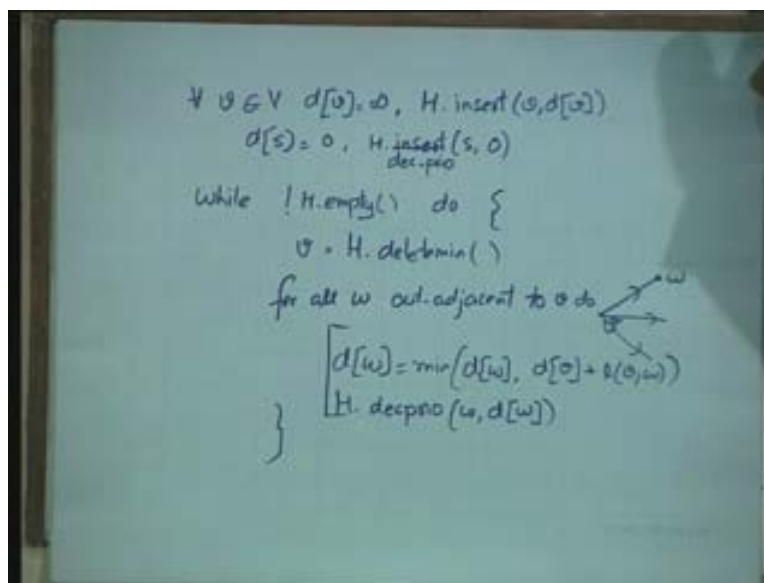 ∀ v ∈ V d[v]=∞, H.insert(v,d[v])
d[s]=0, H.insert(s, 0)
dec.prio
While !H.empty() do {
v = H.deletemin()
for all w out-adjacent to v do
w
v
d[w]=min(d[w], d[v]+l(v,w))
H.decprio(w,d[w])
}